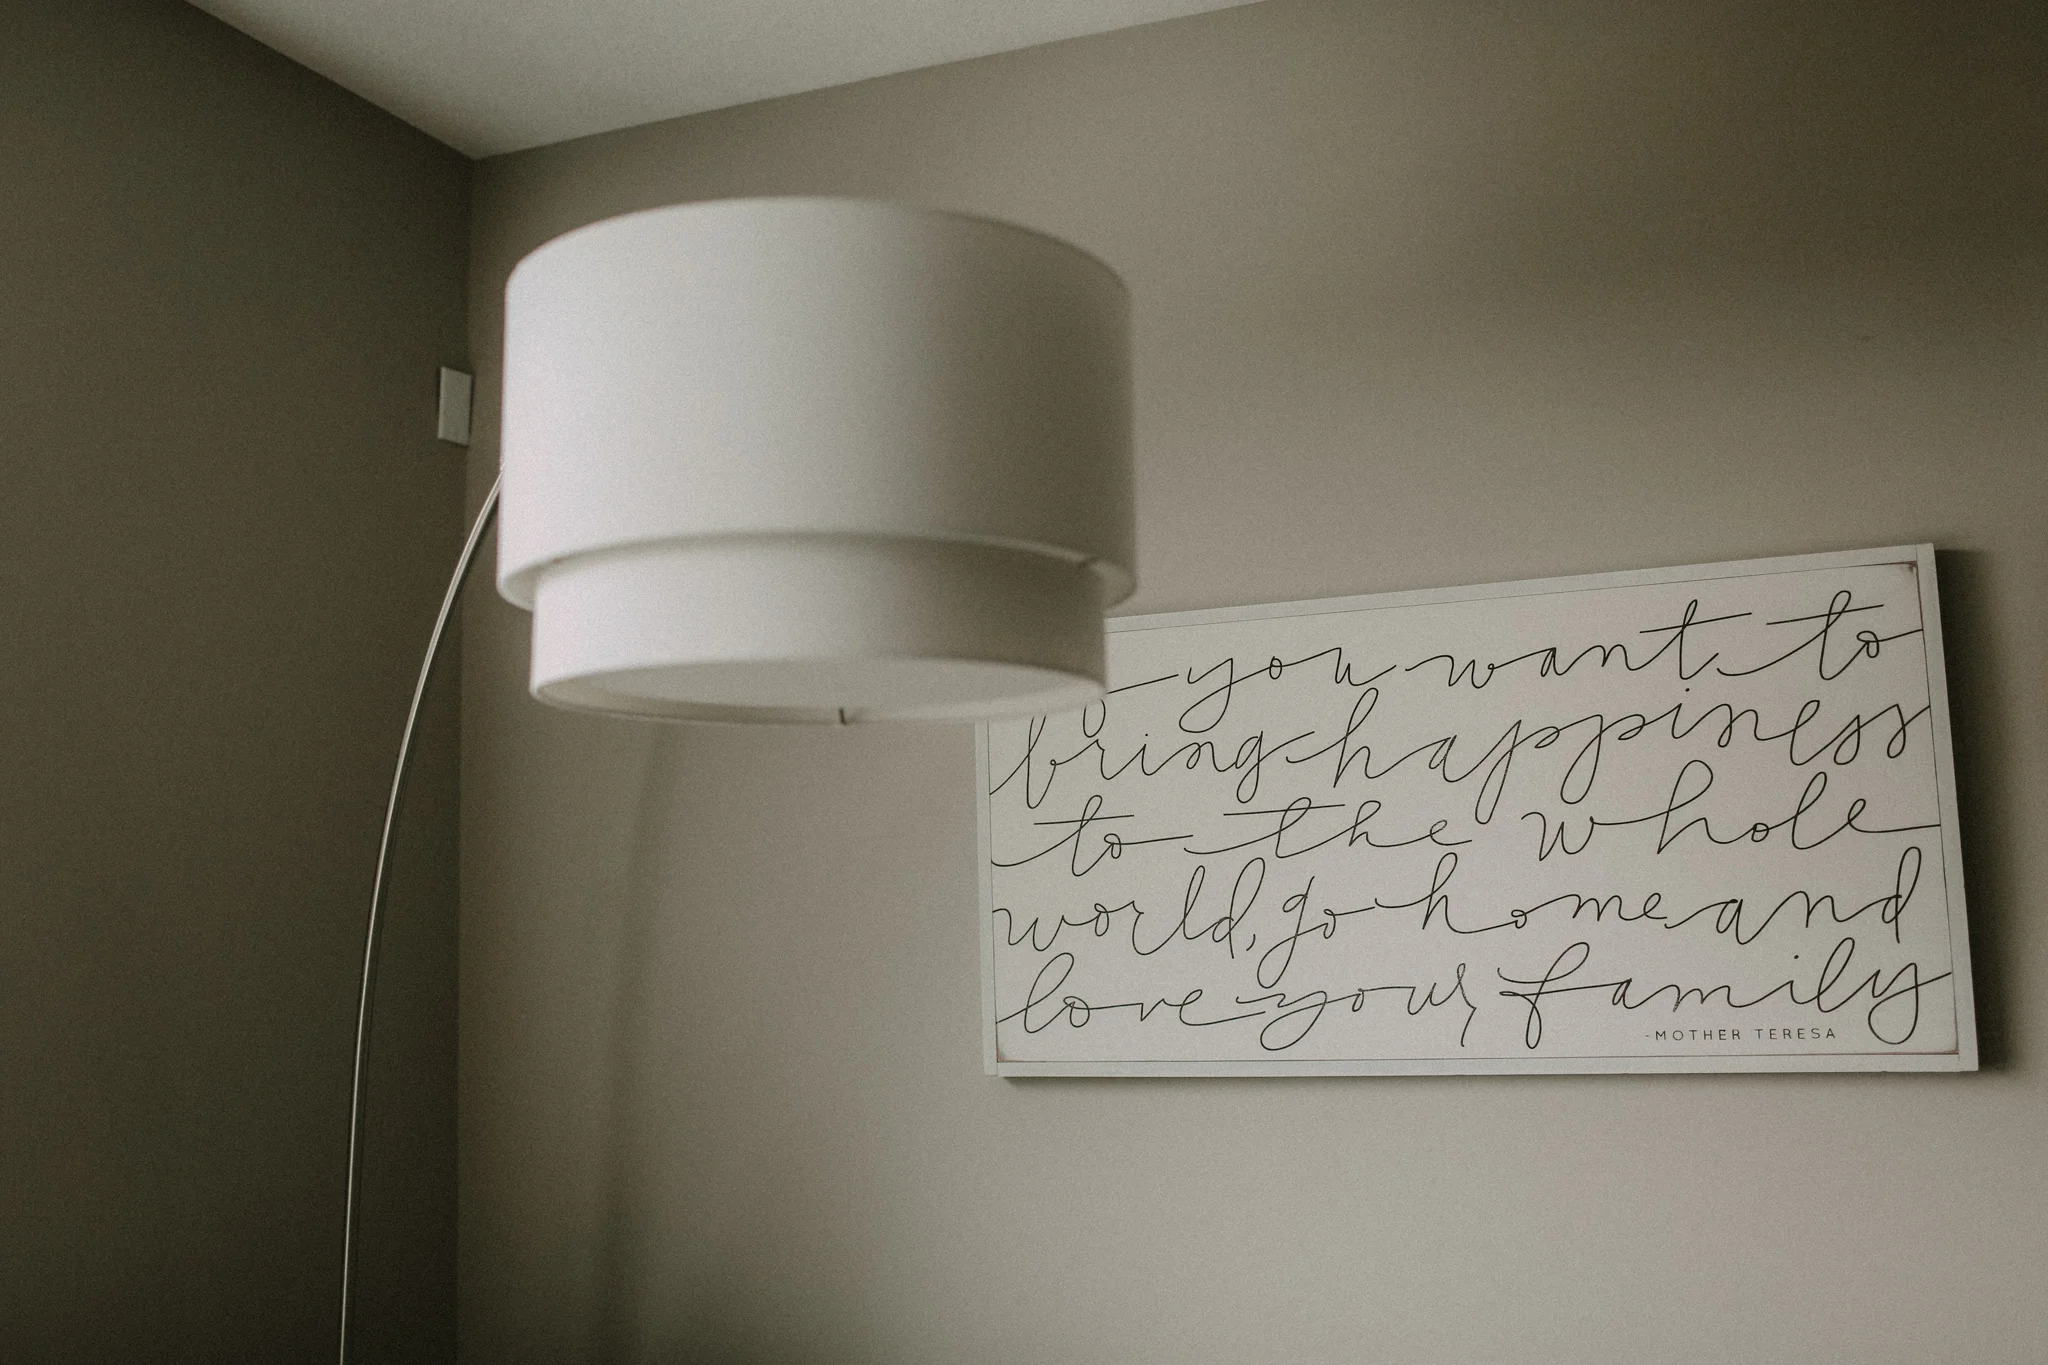 you want to
bring happiness
to the whole
world, go home and
love your family
-MOTHER TERESA